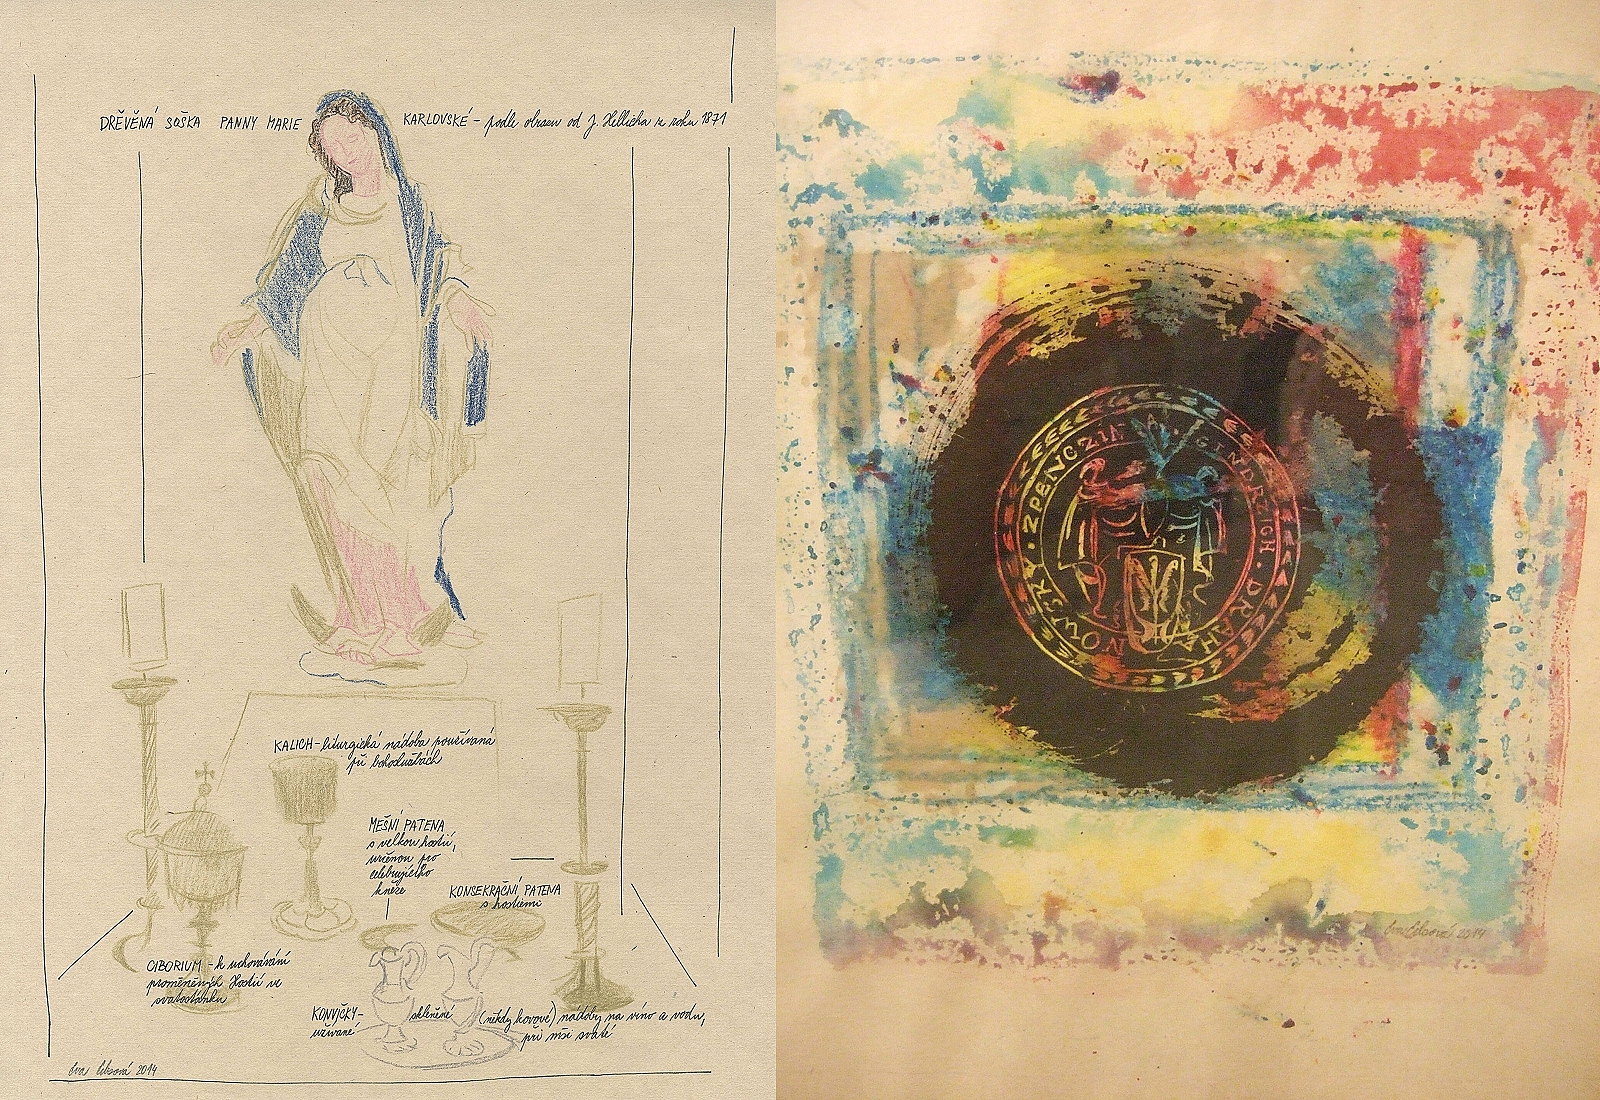 DŘEVĚNÁ SOŠKA PANNY MARIE KARLOVSKÉ - podle obrazu od J. Hellicha z roku 1871
KALICH - liturgická nádoba používaná
při bohoslužbách
MEŠNÍ PATENA
s velkou hostií,
určenou pro
celebrujícího
kněze
KONSEKRAČNÍ PATENA
s hostiemi
CIBORIUM - k uchovávání
proměněných Hostií ve
svatostánku
KONVIČKY - skleněné (někdy kovové) nádoby na víno a vodu,
užívané při mši svaté
2014
GINDRZICH · DRAHANOWSKY · Z PENCZINA
2014